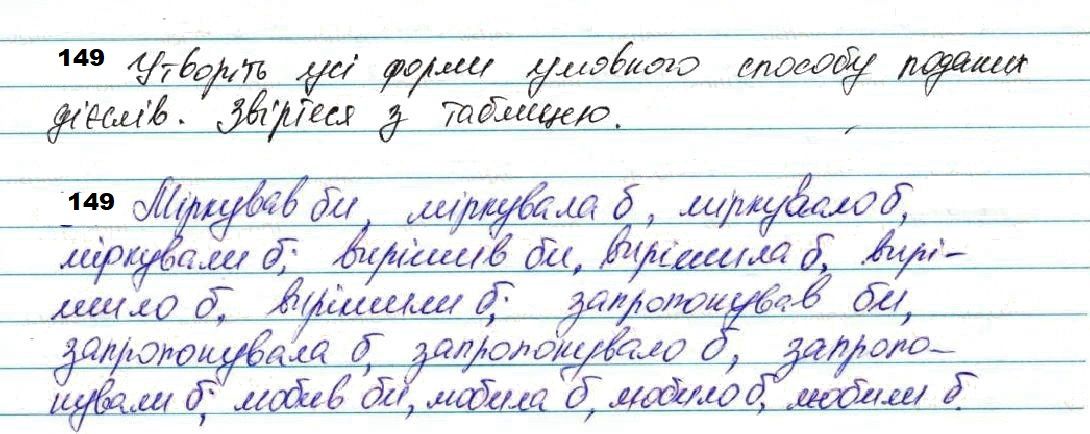 149 Утворіть усі форми умовного способу поданих
дієслів. Звіртеся з таблицею.
149 Міркував би, міркувала б, міркувало б,
міркували б; вирішив би, вирішила б, вирі-
шило б, вирішили б; запропонував би,
запропонувала б, запропонувало б, запропо-
нували б; любив би, любила б, любило б, любили б.